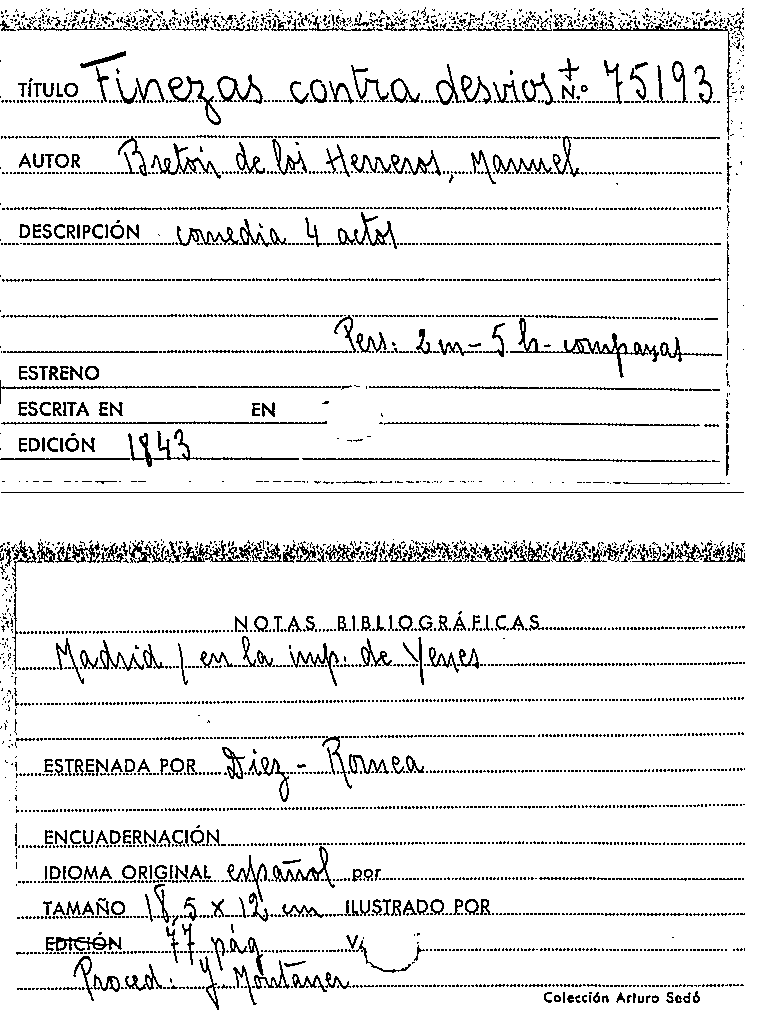 TÍTULO Finezas contra desvios + N.º 75193
AUTOR Bretón de los Herreros, Manuel
DESCRIPCIÓN comedia 4 actos
Pers: 2 m - 5 h - comparsas
ESTRENO
ESCRITA EN EN
EDICIÓN 1843
NOTAS BIBLIOGRÁFICAS
Madrid / en la imp. de Yenes
ESTRENADA POR Diez - Romea
ENCUADERNACIÓN
IDIOMA ORIGINAL español por
TAMAÑO 18,5 x 12 cm ILUSTRADO POR
EDICIÓN 77 pág V.
Proced: y Montaner
Colección Arturo Sedó